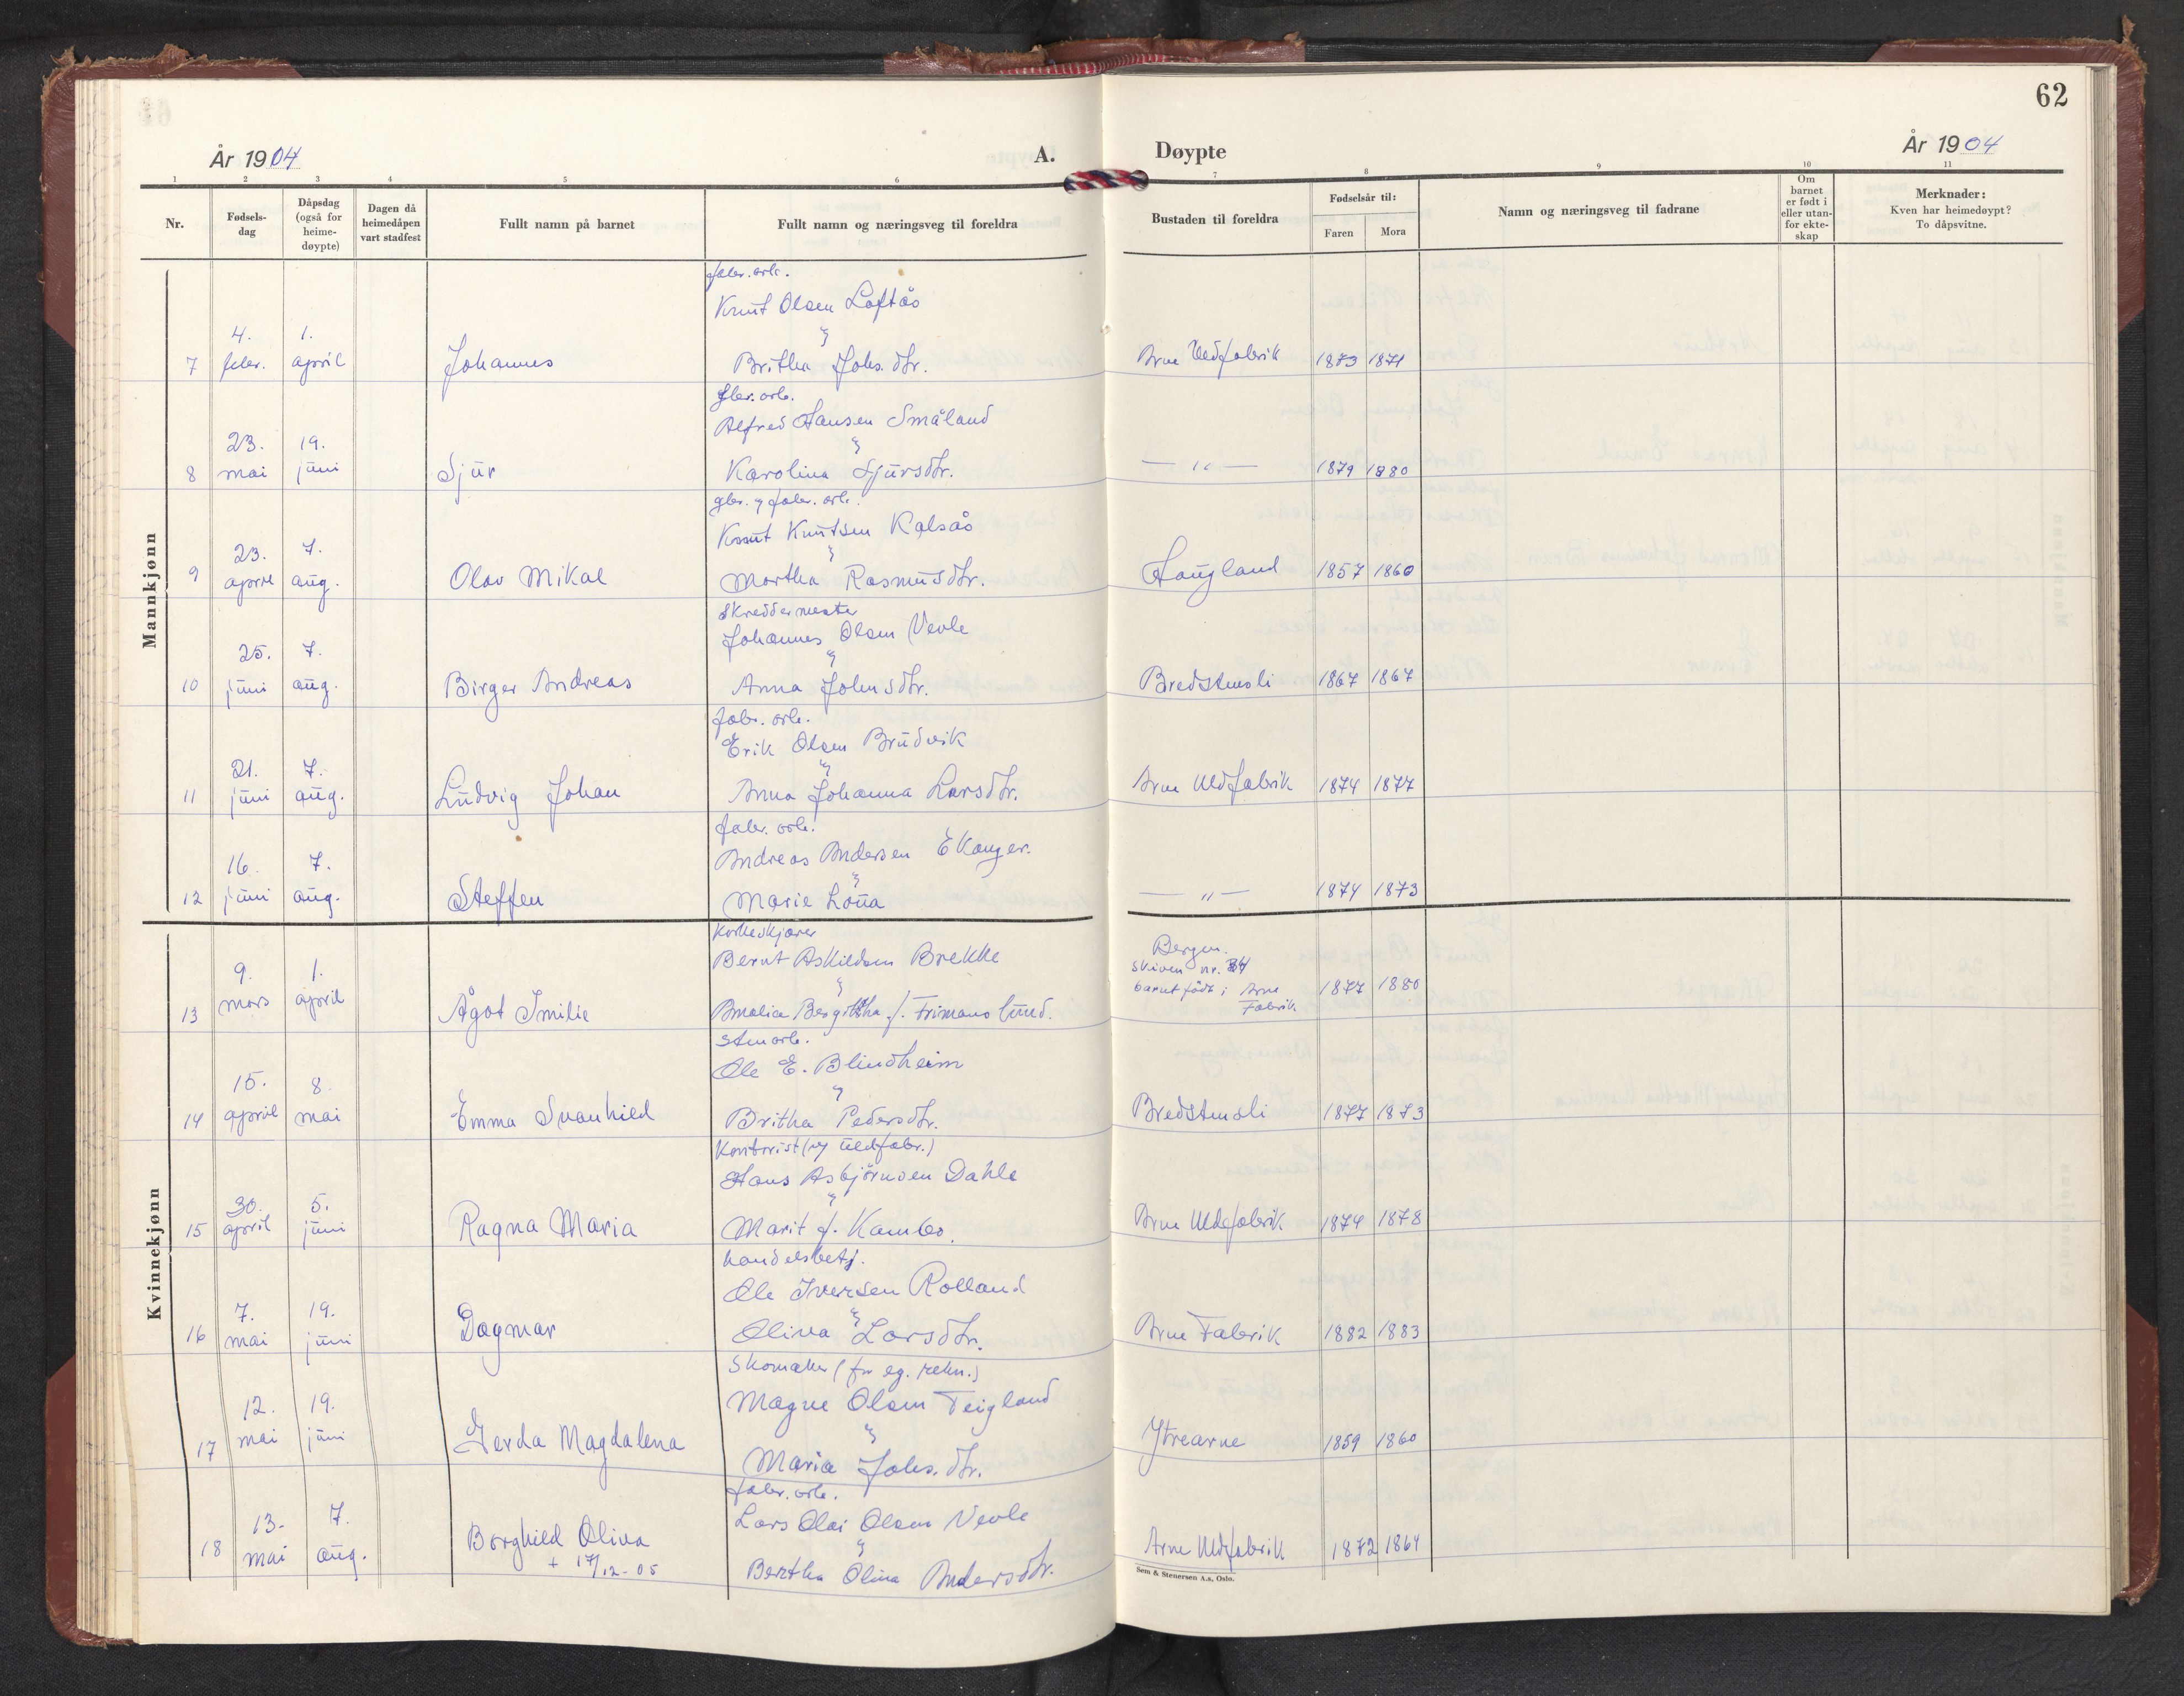 62
År 1904
A.
Døypte
År 1904
1 2 3 4 5 6 7 8 9 10 11
Nr.
Fødsels-
dag
Dåpsdag
(også for
heime-
døypte)
Dagen då
heimedåpen
vart stadfest
Fullt namn på barnet
Fullt namn og næringsveg til foreldra
Bustaden til foreldra
Fødselsår til:
Faren Mora
Namn og næringsveg til fadrane
Om
barnet
er født i
eller utan-
for ekte-
skap
Merknader:
Kven har heimedøypt?
To dåpsvitne.
Mannkjønn
fabr. arb.
Knut Olsen Loftås
4. 1. &
7 febr. april Johannes Britha Johs. dtr. Arne Uldfabrik 1873 1871
fbr. arb.
Alfred Hansen Småland
23. 19. &
8 mai juni Sjur Karolina Sjursdtr. — " — 1879 1880
gbr. & fabr. arb.
Knut Knutsen Kalsås
23. 7. &
9 april aug. Olav Mikal Martha Rasmusdtr. Haugland 1857 1860
Skreddermester
Johannes Olsen Vevle
25. 7. &
10 juni aug. Birger Andreas Anna Johnsdtr. Bredstensli 1867 1867
fabr. arb.
Erik Olsen Brudvik
21. 7. &
11 juni aug. Ludvig Johan Anna Johanna Larsdtr. Arne Uldfabrik 1874 1877
fabr. arb.
Andreas Andersen Ekanger.
16. 7. &
12 juni aug. Steffen Marie Lona — " — 1874 1873
Kvinnekjønn
Korkeskjærer
Bernt Askildsen Brekke Bergen.
9. 1. & Skiven nr. 34
13 mars april Ågot Emilie Amalia Bergitha f. Frimanslund. barnet født i Arne Fabrik 1877 1880
Stenarb.
Ole E. Blindheim
15. 8. &
14 april mai Emma Svanhild Britha Pedersdtr. Bredstensli 1877 1873
Kontorist (v/ Uldfabr.)
Hans Asbjörnsen Dahle
30. 5. &
15 april juni Ragna Maria Marit f. Kambo. Arne Uldfabrik 1874 1878
handelsbetj.
Ole Iversen Rolland
7. 19. &
16 mai juni Dagmar Oliva Larsdtr. Arne Fabrik 1882 1883
Skomaker (for eg. rekn.)
Magne Olsen Teigland
12. 19. &
17 mai juni Gerda Magdalena Maria Johs. dtr. Ytrearne 1859 1860
fabr. arb.
Lars Olai Olsen Vevle
13. 7. &
18 mai aug. Borghild Oliva Bertha Olina Andersdtr. Arne Uldfabrik 1872 1864
+ 17/12-05
Sem & Stenersen A.s, Oslo.